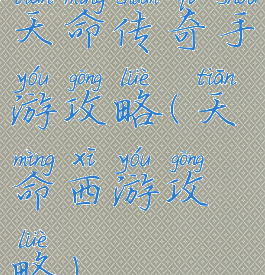 tiān mìng chuán qí shǒu
天命传奇手
yóu gōng lüè tiān
游攻略(天
mìng xī yóu gōng
命西游攻
lüè
略)